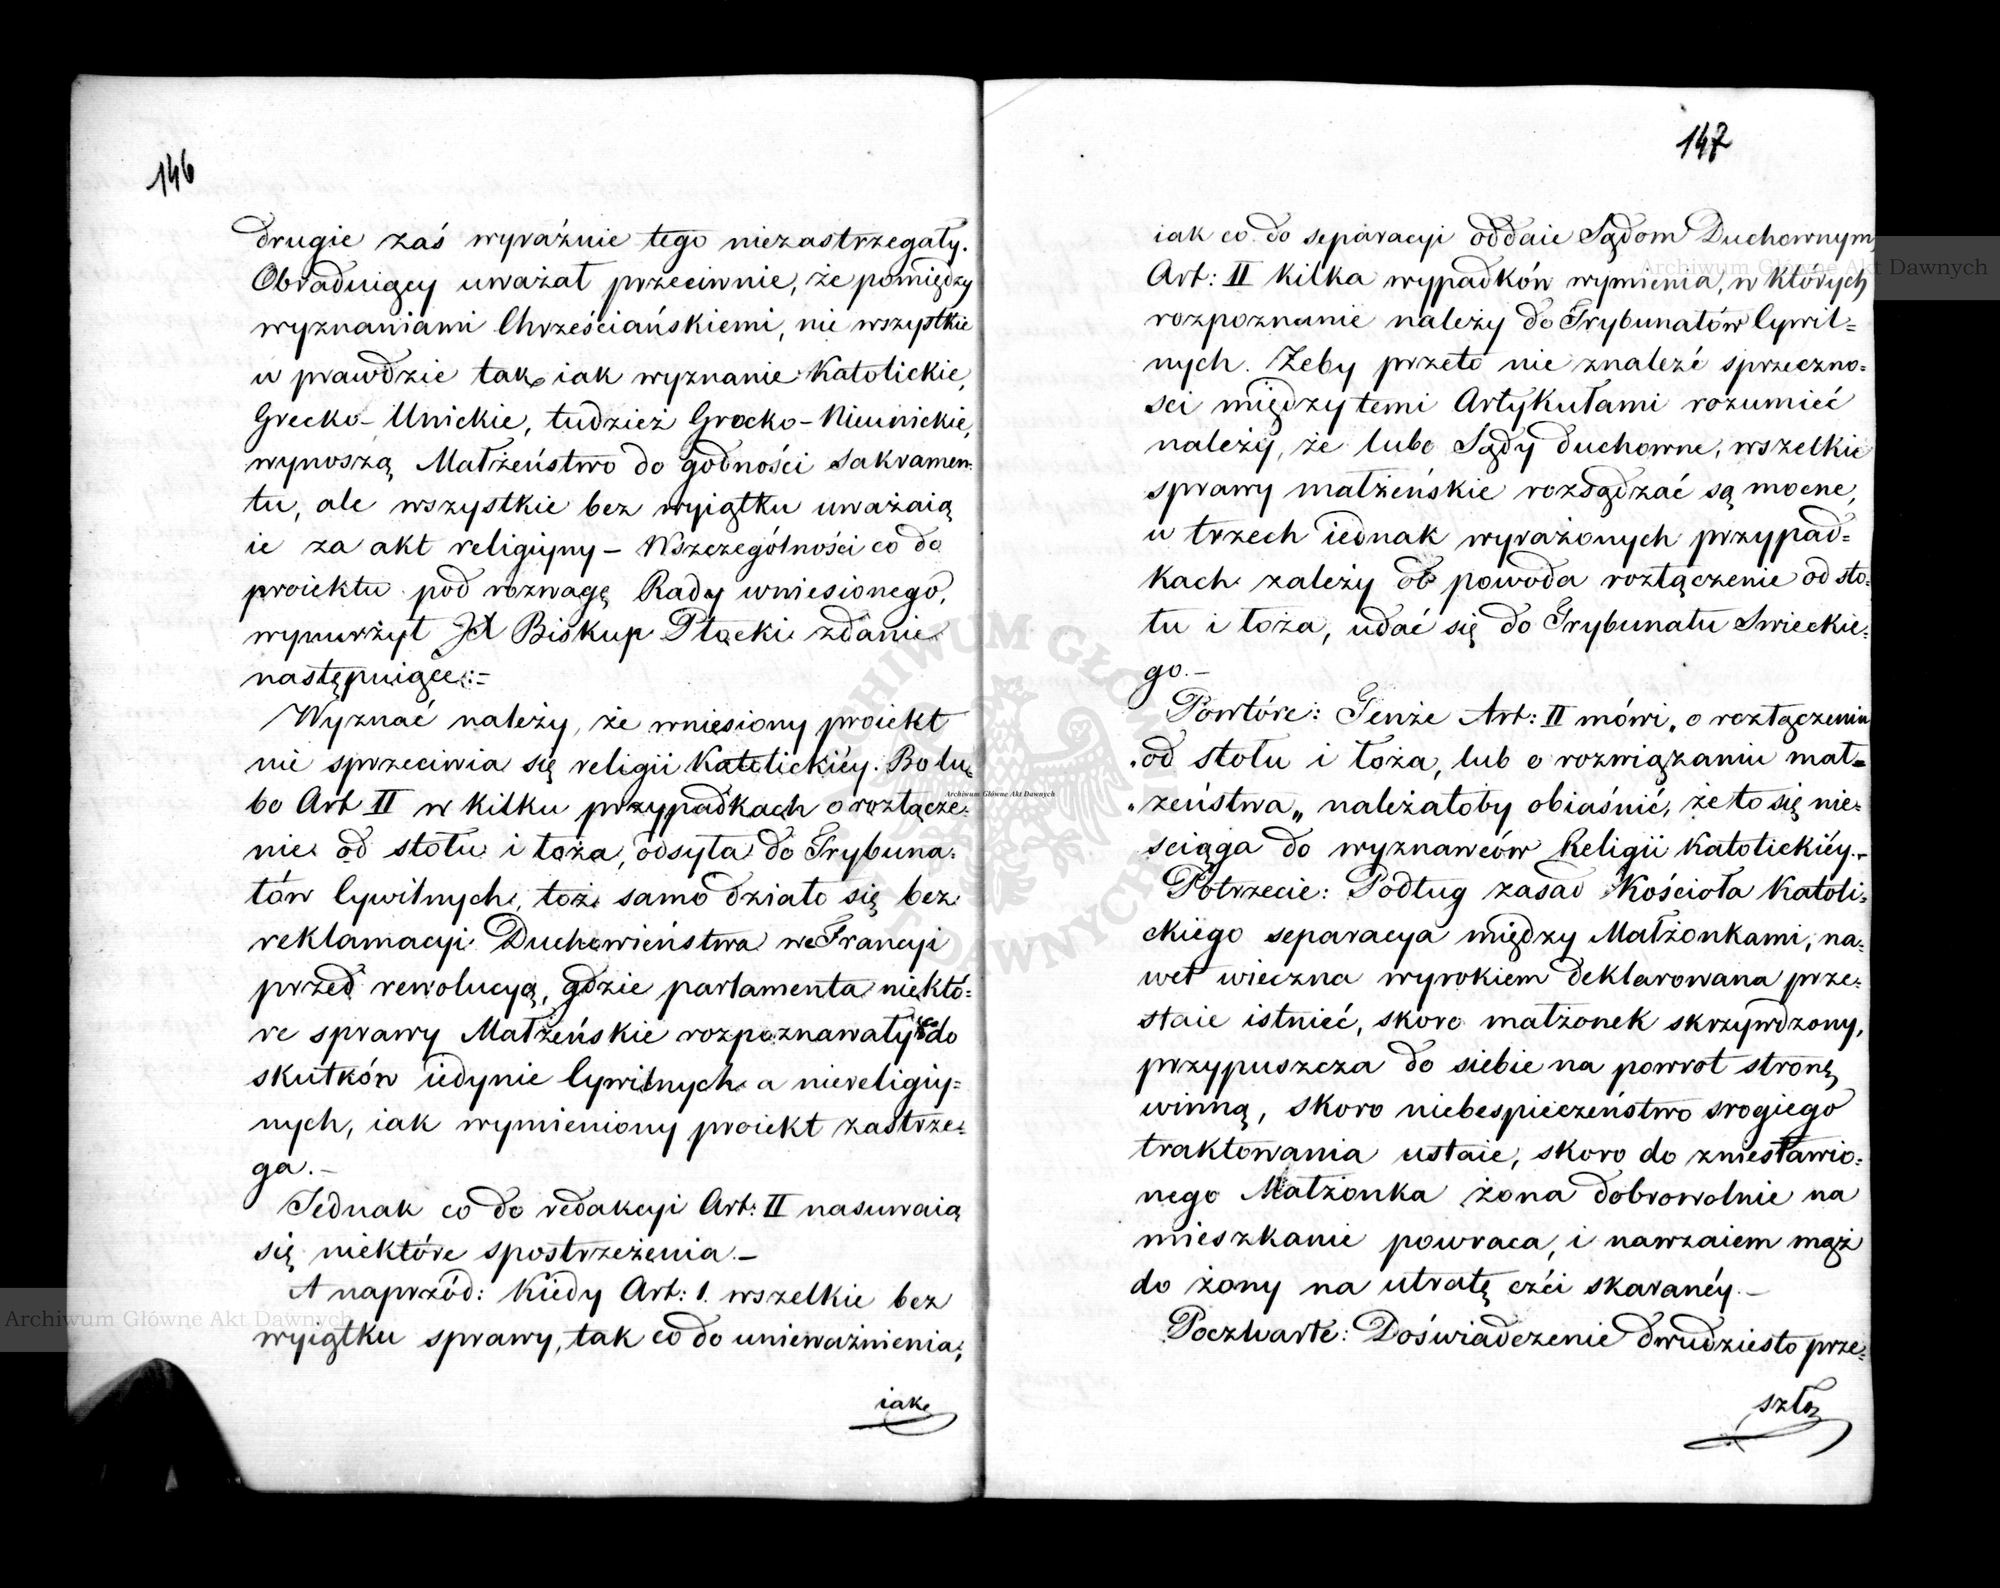 146
drugie zaś wyraźnie tego niezastrzegały.
Obraduiący uważał przeciwnie, że pomiędzy
wyznaniami Chrześciańskiemi, nie wszystkie
w prawdzie tak iak wyznanie Katolickie,
Grecko-Unickie, tudzież Grecko-Nieunickie,
wynoszą Małżeństwo do godności Sakramen:
tu, ale wszystkie bez wyiątku uważaią
ie za akt religiyny – Wszczególności co do
proiektu pod rozwagę Rady wniesionego,
wynurzył JX Biskup Płocki zdanie
następuiące:=
Wyznać należy, że wniesiony proiekt
nie sprzeciwia się religii Katolickiéy. Bo lu:
bo Art II w kilku przypadkach o rozłącze:
nie od stołu i łoża, odsyła do Trybuna:
łów Cywilnych, toż samo działo się bez
reklamacyi Duchowieństwa we Francyi
przed rewolucyą, gdzie parlamenta niektó:
re sprawy Małżeńskie rozpoznawały co do
skutków iedynie Cywilnych a niereligiy=
nych, iak wymieniony proiekt zastrze:
ga.–
Jednak co do redakcyi Art: II nasuwaią
się niektóre spostrzeżenia.–
A naprzód: Kiedy Art: 1. wszelkie bez
wyiątku sprawy, tak co do unieważnienia,
iak
Archiwum Główne Akt Dawnych
147
iak co do separacyi oddaie Sądom Duchownym
Art: II kilka wypadków wymienia, w których
rozpoznanie należy do Trybunałów Cywil=
nych. Żeby przeto nie znaleźć sprzeczno=
sci między temi Artykułami rozumieć
należy, że lubo Sądy duchowne, wszelkie
sprawy małżeńskie rozsądzać są mocne,
w trzech iednak wyrażonych przypad=
kach zależy od powoda rozłączenie od sto:
łu i łoża, udać się do Trybunału Swieckie:
go.–
Powtóre: Tenże Art: II mówi „o rozłączeniu
„od stołu i łoża, lub o rozwiązaniu mał=
„żeństwa„ należałoby obiaśnić, że to się nie=
sciąga do wyznawców Religii Katolickiéy.–
Potrzecie: Podług zasad Kościoła Katoli:
ckiego separacya między Małżonkami, na:
wet wieczna wyrokiem deklarowana prze:
staie istnieć, skoro małżonek skrzywdzony,
przypuszcza do siebie na powrot stronę
winną, skoro niebespieczeństwo srogiego
traktowania ustaie, skoro do zniesławio:
nego Małżonka żona dobrowolnie na
mieszkanie powraca, i nawzaiem mąż
do żony na utratę czći skaranéy.–
Poczwarte: Doświadczenie dwudziesto prze:
szło
Archiwum Główne Akt Dawnych
ARCHIWUM GŁÓWNE AKT DAWNYCH
Archiwum Główne Akt Dawnych